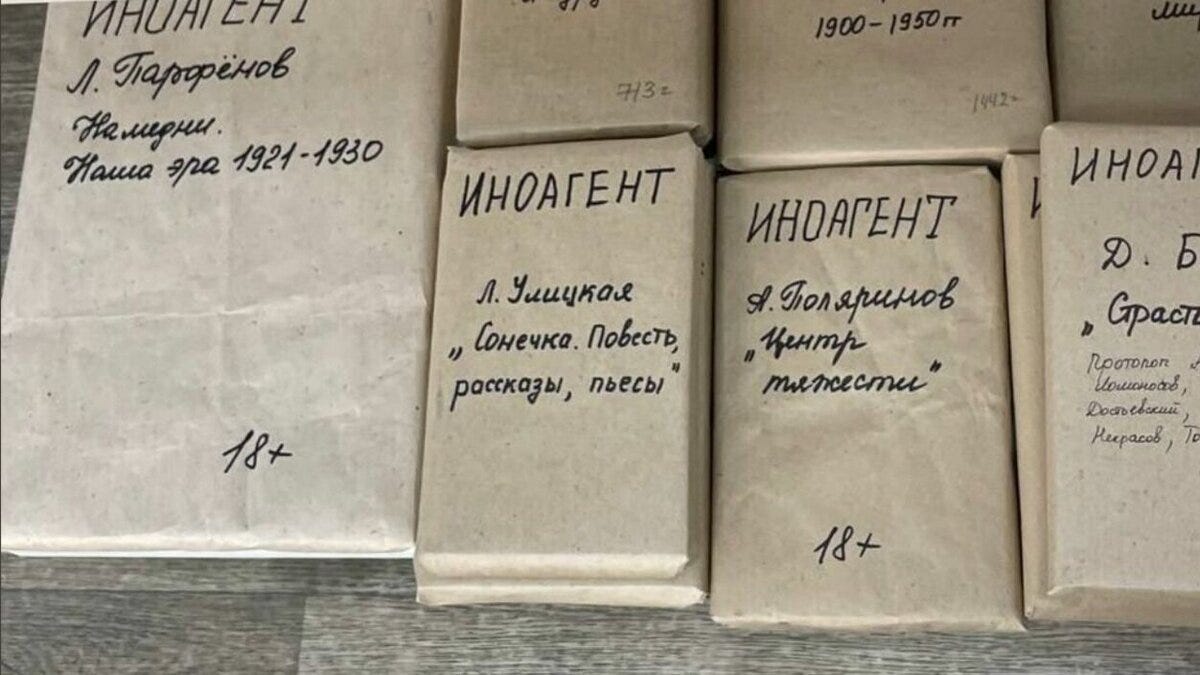 ИНОАГЕНТ
Л. Парфёнов
Намедни.
Наша эра 1921-1930
18+
713г
1900-1950 гг
1442г
ИНОАГЕНТ
Л. Улицкая
„Сонечка. Повесть,
рассказы, пьесы"
ИНОАГЕНТ
А. Поляринов
„Центр
тяжести"
18+
И
ИНОАГ
Д. Б
„Страст
Протопоп А
Ломоносов,
Достоевский,
Некрасов, То